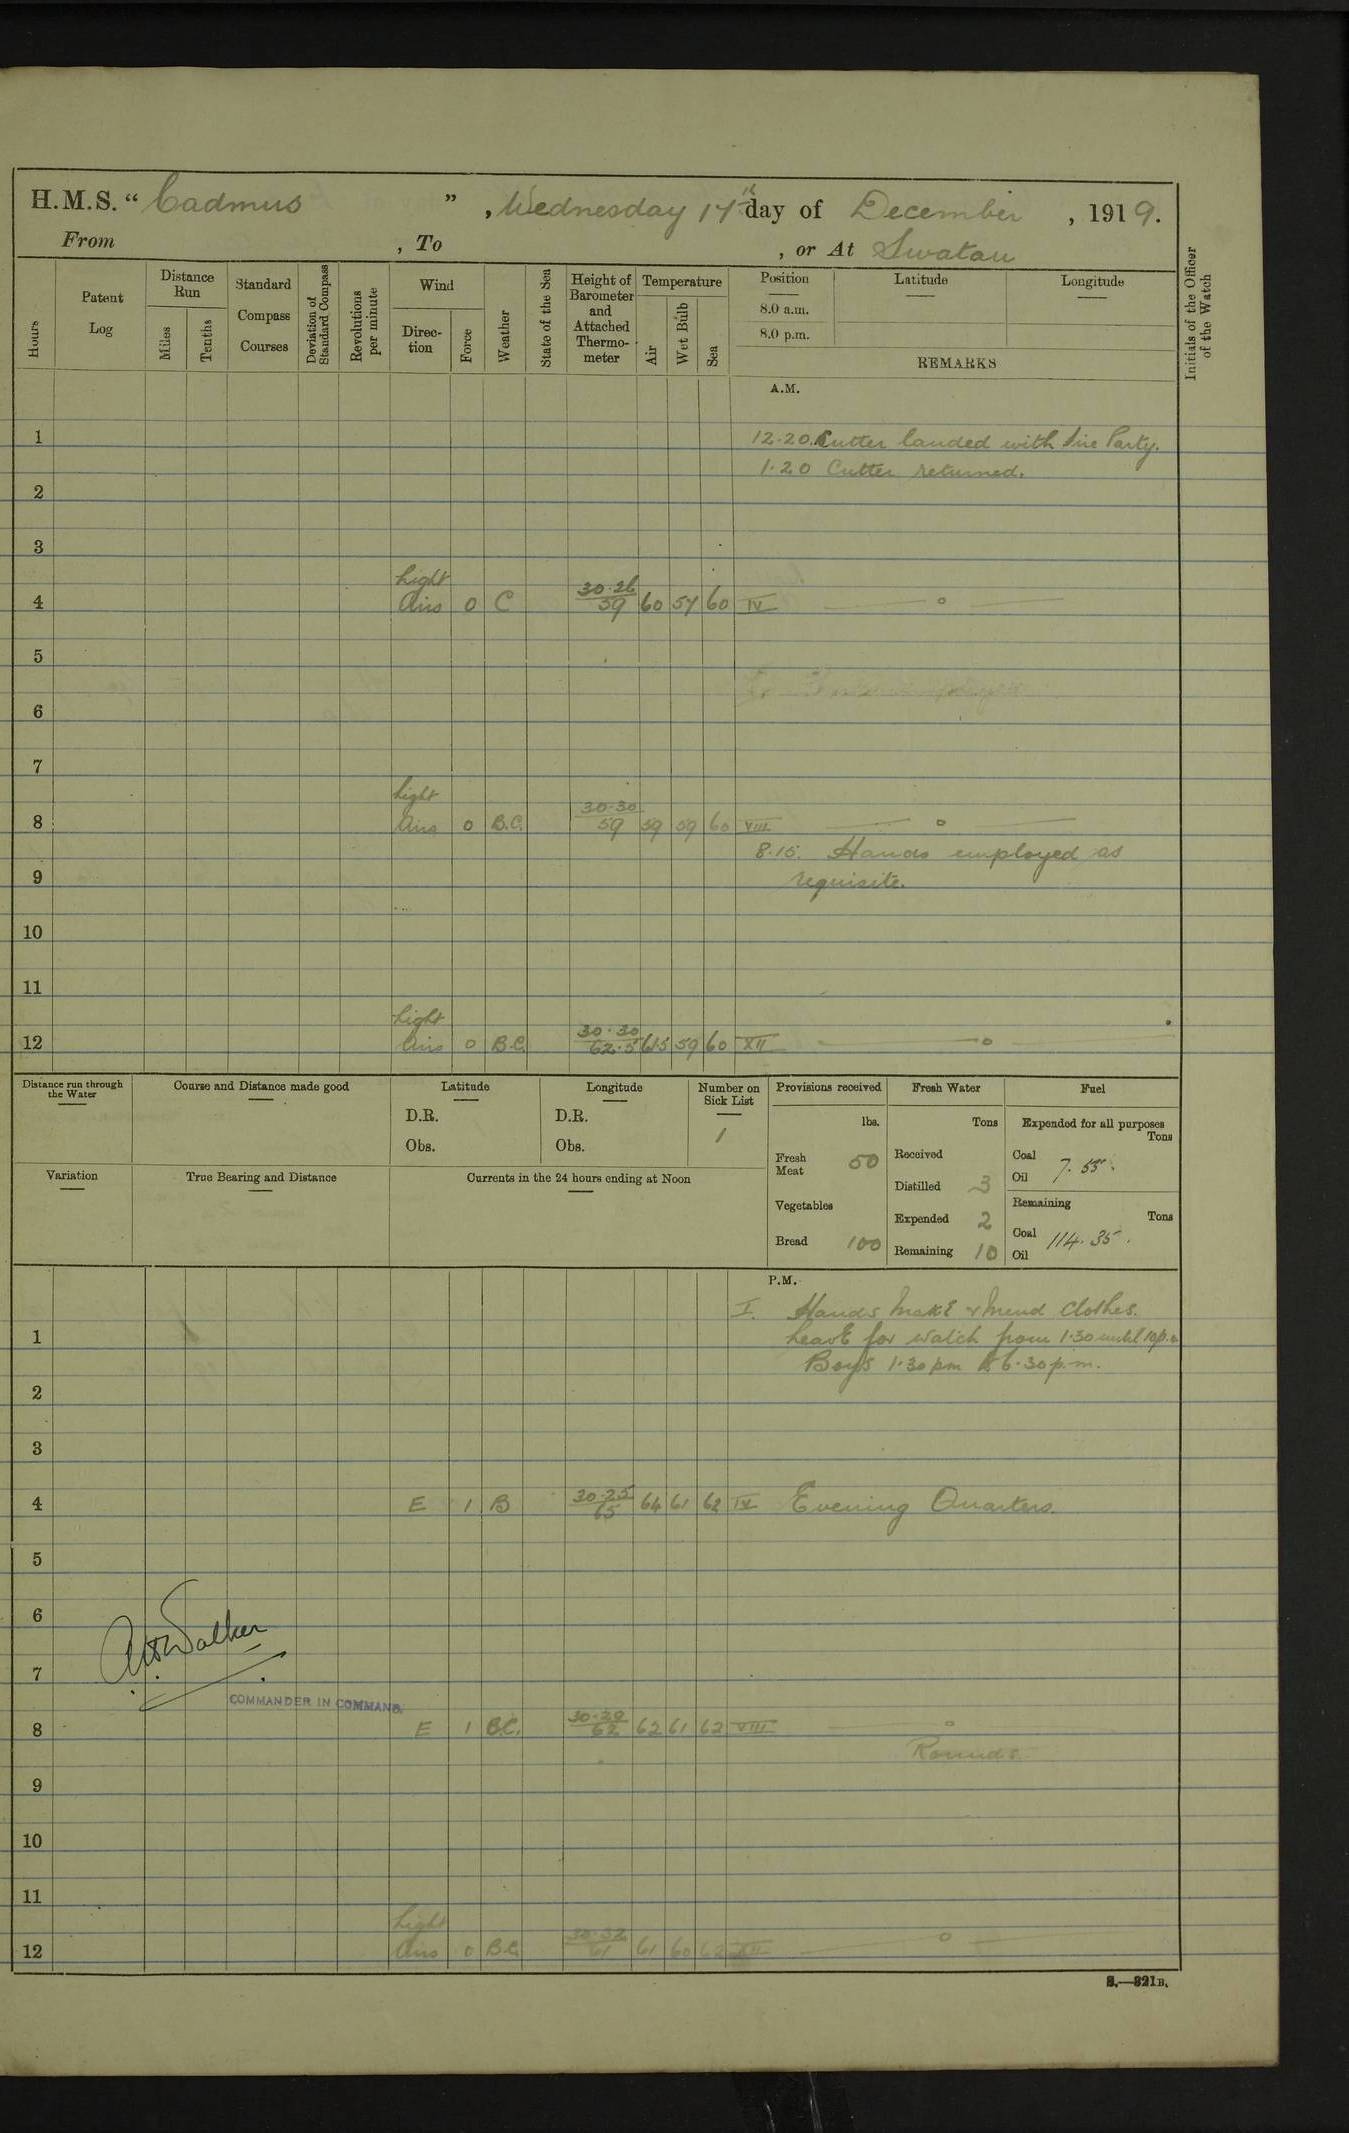 H.M.S. “ Cadmus ” , Wednesday 17th day of December , 1919.
From , To , or At Swatau
Hours
Patent Log
Distance Run
Miles
Tenths
Standard Compass Courses
Deviation of Standard Compass
Revolutions per minute
Wind
Direc- tion
Force
Weather
State of the Sea
Height of Barometer and Attached Thermo- meter
Temperature
Air
Wet Bulb
Sea
Position
8.0 a.m.
8.0 p.m.
Latitude
Longitude
REMARKS
Initials of the Officer of the Watch
A.M.
1 12.20. Cutter landed with fire Party.
1.20 Cutter returned.
2
3
Light
4 Airs 0 C 30.26 59 60 57 60 IV
5
6
7
Light
8 Airs 0 B.C. 30.30 59 59 59 60 VIII
8.15. Hands employed as
9 requisite.
10
11
Light
12 Airs 0 B.C. 30.30 62.5 61.5 59 60 XII
Distance run through the Water
Course and Distance made good
Latitude
D.R.
Obs.
Longitude
D.R.
Obs.
Number on Sick List
1
Provisions received
lbs.
Fresh Meat 50
Vegetables
Bread 100
Fresh Water
Tons
Received
Distilled 3
Expended 2
Remaining 10
Fuel
Expended for all purposes
Tons
Coal
Oil 7.55.
Remaining
Tons
Coal 114.35.
Oil
Variation
True Bearing and Distance
Currents in the 24 hours ending at Noon
P.M.
I. Hands make & mend clothes.
1 Leave for watch from 1.30 until 10p.m
Boys 1.30 pm to 6.30 p.m.
2
3
4 E 1 B 30.25 65 64 61 62 IV Evening Quarters.
5
6
Walker
7
COMMANDER IN COMMAND.
8 E 1 B.C. 30.29 62 62 61 62 VIII
Rounds
9
10
11
Light
12 Airs 0 B.C. 30.32 61 61 60 62 XII
S.—321B.